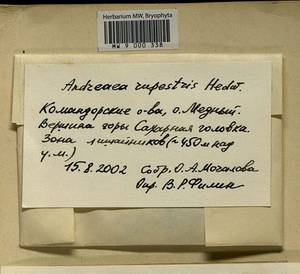 Herbarium MW, Bryophyta
MW 9 000 338
Andreaea rupestris Hedw.
Командорские о-ва, о. Медный.
Вершина горы Сахарная головка.
Зона лишайников (~450м над
у.м.)
15.8.2002 Собр. О.А.Мочалова
Опр. В.Р.Филин